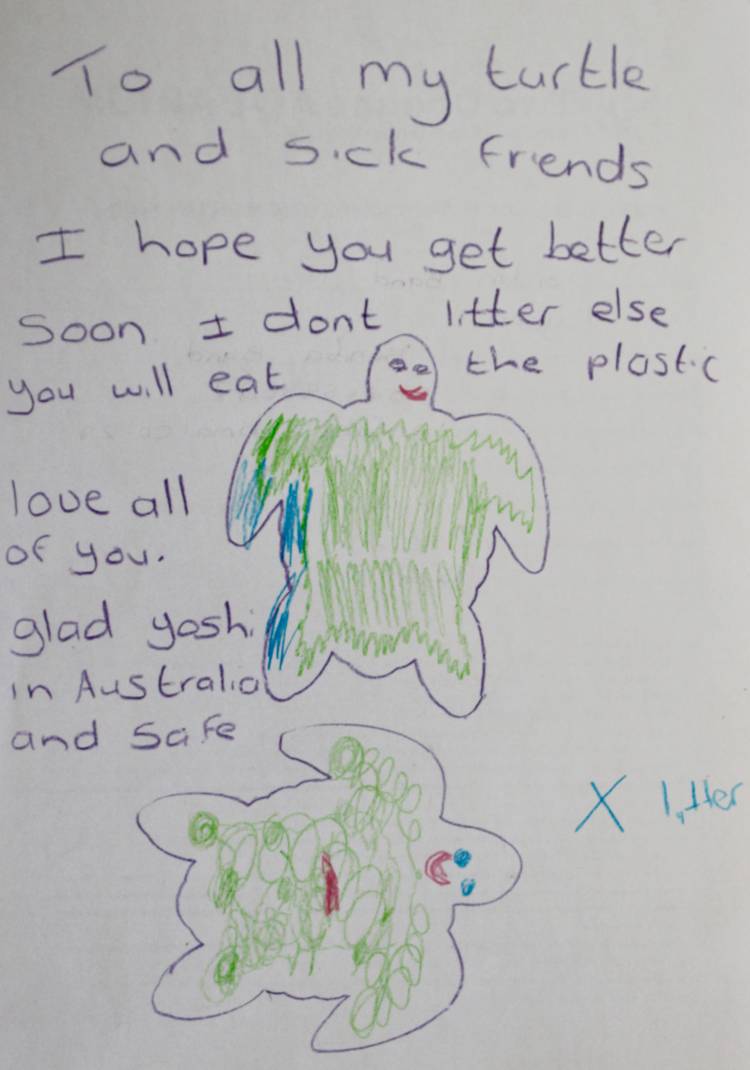 To all my turtle
and sick friends
I hope you get better
soon. I dont litter else
you will eat the plastic
love all
of you.
glad yoshi
in Australia
and safe
X litter